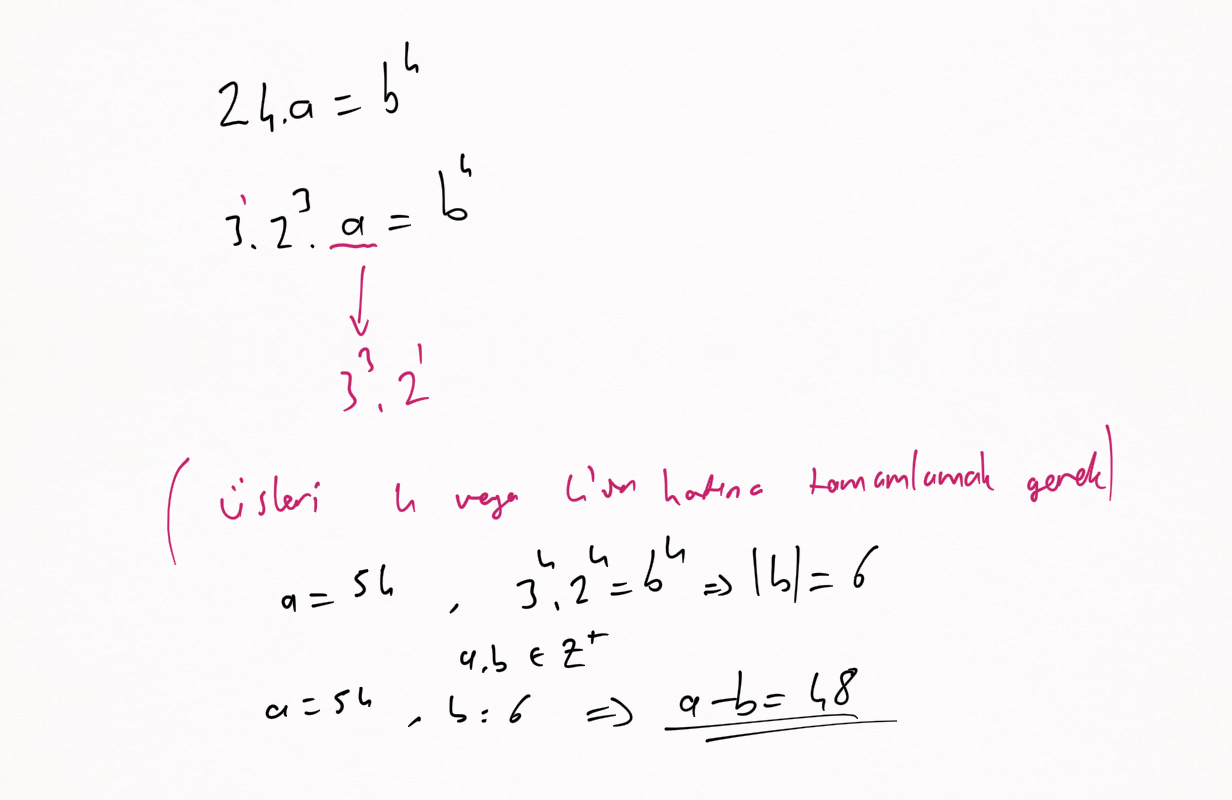 24.a = b⁴
3¹.2³.a = b⁴
3³.2¹
(üsleri 4 veya 4'ün katına tamamlamak gerek)
a = 54 , 3⁴.2⁴ = b⁴ ⇒ |b| = 6
a,b ∈ Z⁺
a = 54 , b = 6 ⇒ a-b = 48